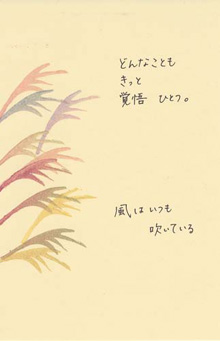 どんなことも
きっと
覚悟 ひとつ。
風はいつも
吹いている